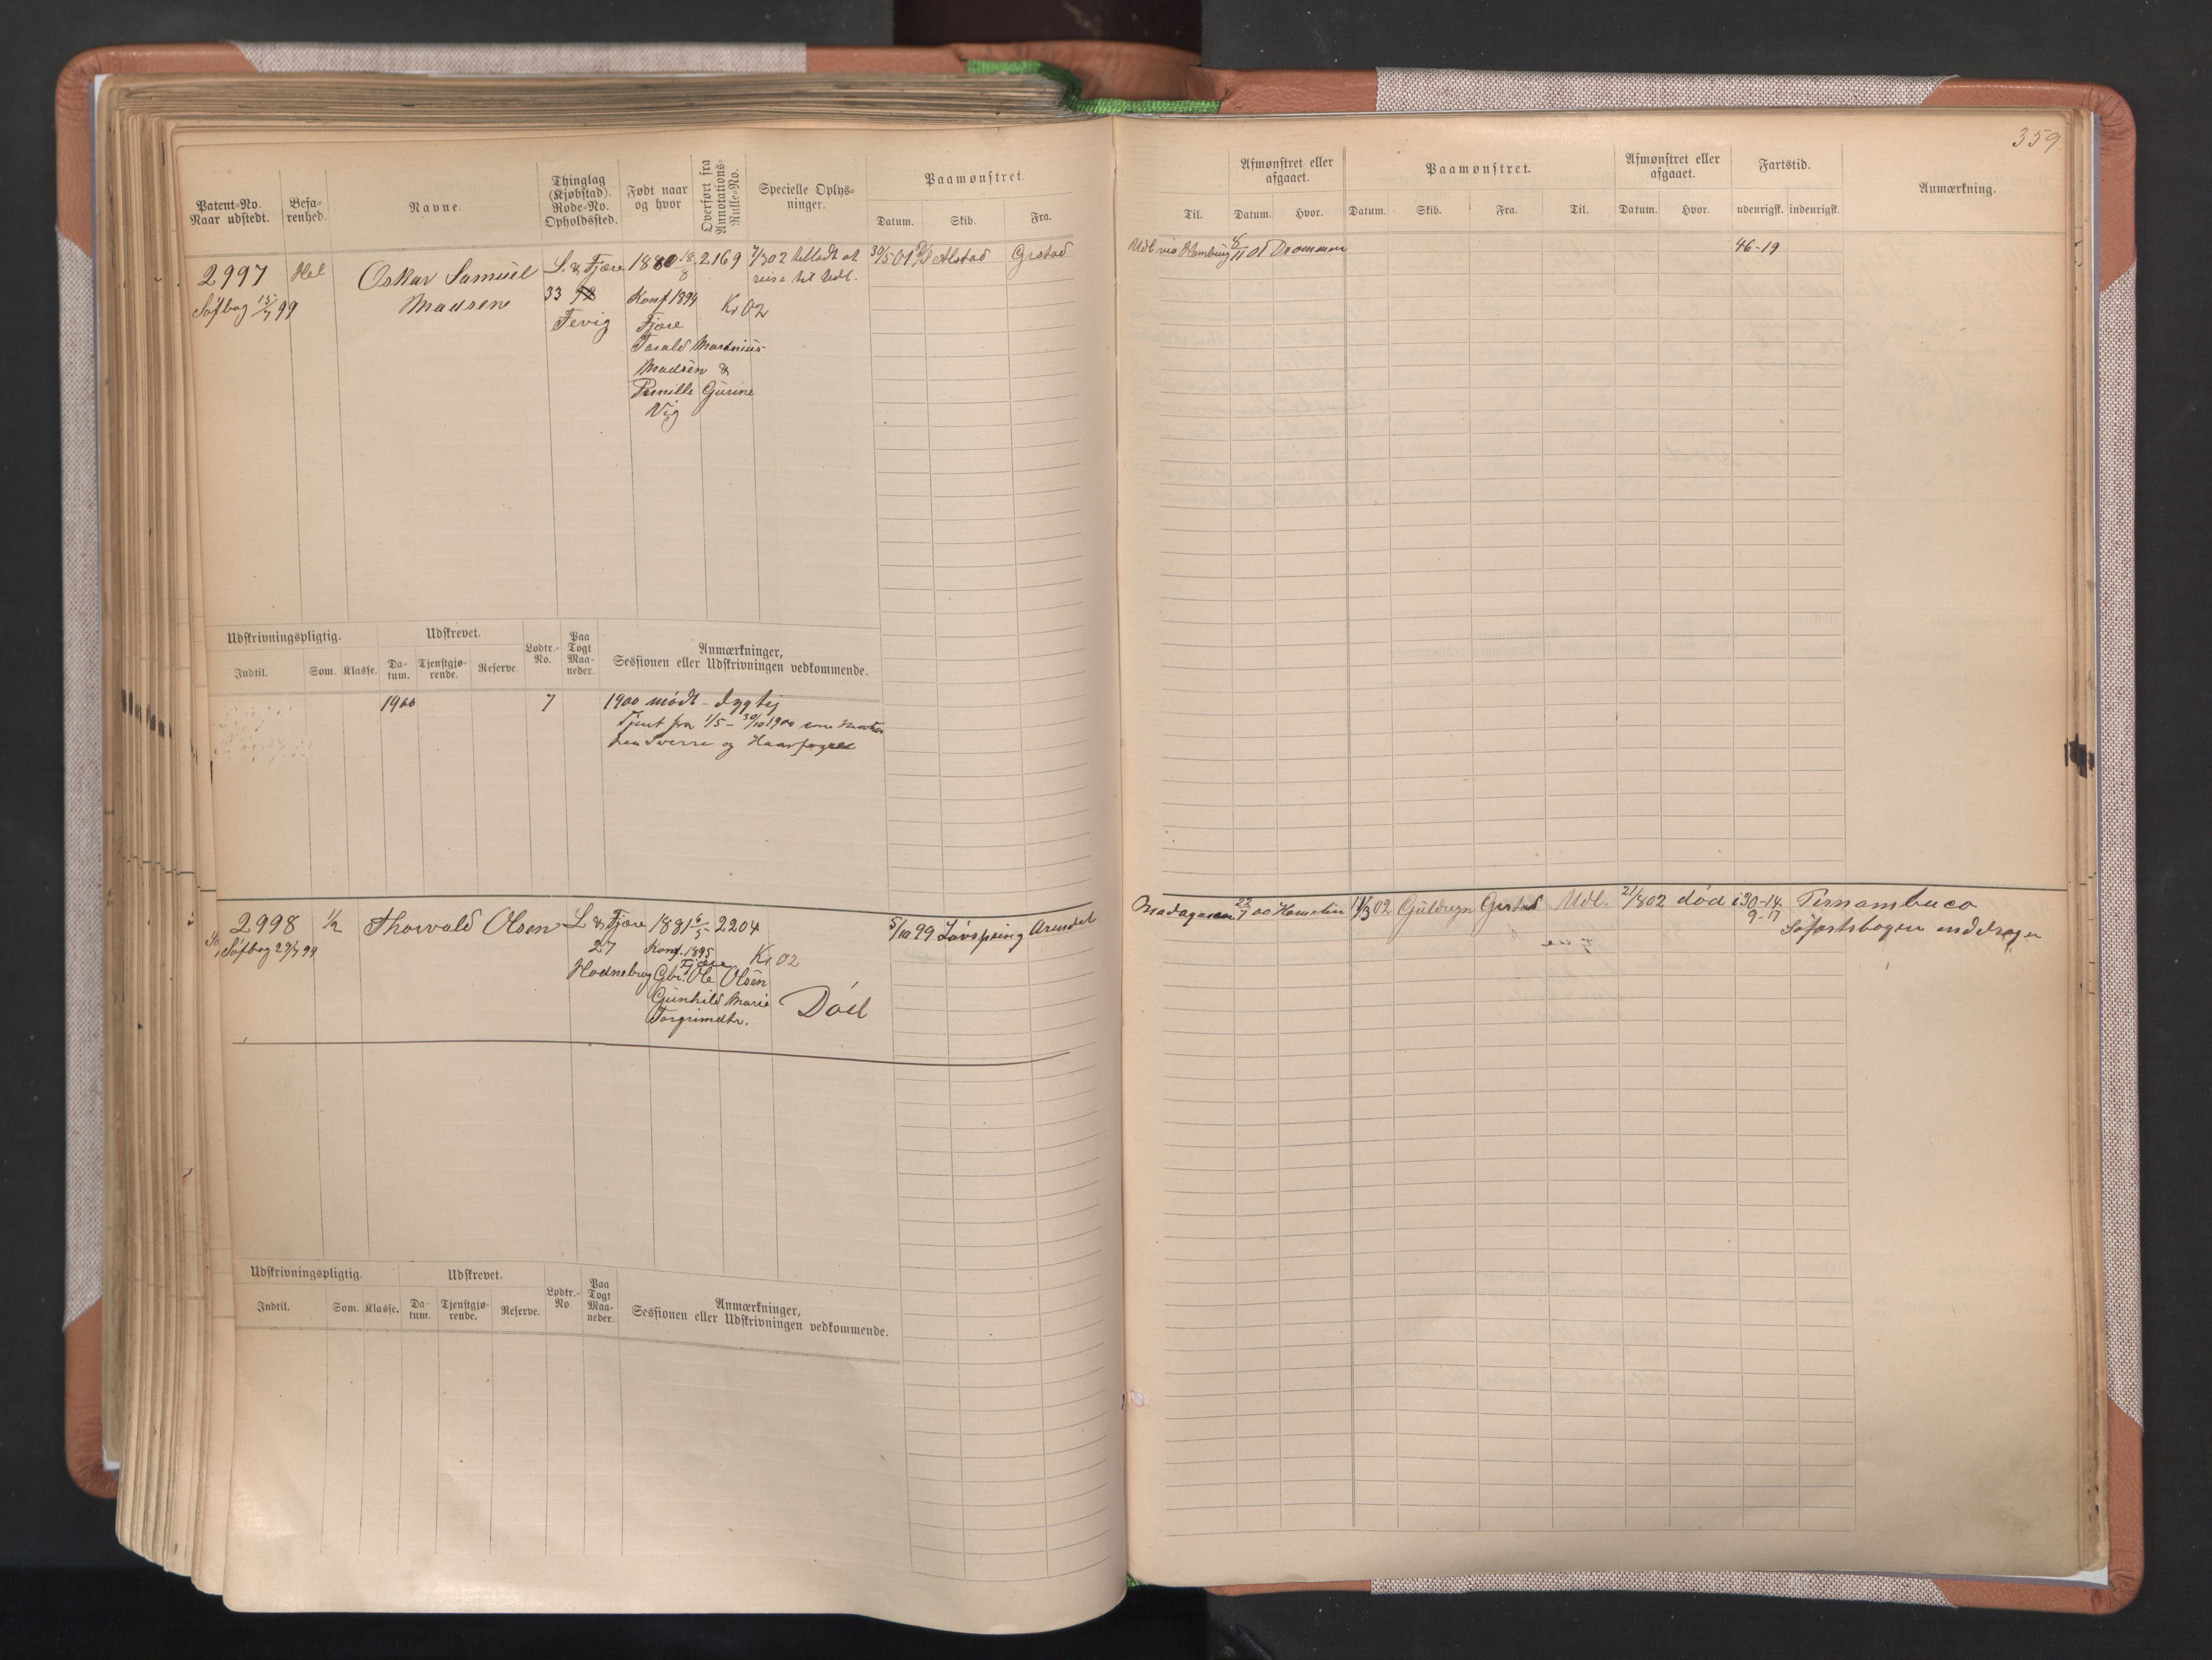 359
Patent-No. Naar udstedt.
Befa-renhed.
Navne.
Thinglag (Kjøbstad). Rode-No. Opholdssted.
Født naar og hvor
Overført fra Annotations-Rulle-No.
Specielle Oplys-ninger.
Paamønstret.
Datum. Skib. Fra.
Til.
Afmønstret eller afgaaet.
Datum. Hvor.
Paamønstret.
Datum. Skib. Fra. Til.
Afmønstret eller afgaaet.
Datum. Hvor.
Fartstid.
udenrigsk. indenrigsk.
Anmærkning.
2997 Hel Oskar Samuel L. & Fjære 1880 18/8 2169 7/3 02 tilledt at 30/5 01 Alstad Grstad Udl via Hamburg 01 Drammen 46-19
Søfbog 15/7 99 Madsen 33 Konf 1894 Kr 02 reise til Udl.
Fevig Fjære
Tarald Martinius
Madsen &
Pernille Gurine
Vig
Udskrivningspligtig.
Udskrevet.
Lodtr.-No.
Paa Togt Maa-neder.
Anmærkninger, Sessionen eller Udskrivningen vedkommende.
Indtil. Som. Klasse. Da-tum. Tjenstgjø-rende. Reserve.
1900 7 1900 mødt - dygtig
Tjent fra 1/5 - 30/10 1900 som
Sverre og Haarfagre
2998 1/2 Thorvald Olsen L & Fjære 1881 6/5 2204 5/10 99 Løvspring Arendal Madagascar 00 02 Guldregn Grstad Udl. 21/8 02 død i 30-14 Pernambuco
Søfbog 29/7 99 27 Konf. 1895 Kr 02 9-17 Søfartsbogen inddragen
Fjære
Hodnebrog Gbr. Ole Olsen
Gunhild Marie Død
Torgrimdtr.
Udskrivningspligtig.
Udskrevet.
Lodtr.-No
Paa Togt Maa-neder.
Anmærkninger, Sessionen eller Udskrivningen vedkommende.
Indtil. Som. Klasse. Da-tum. Tjenstgjø-rende. Reserve.